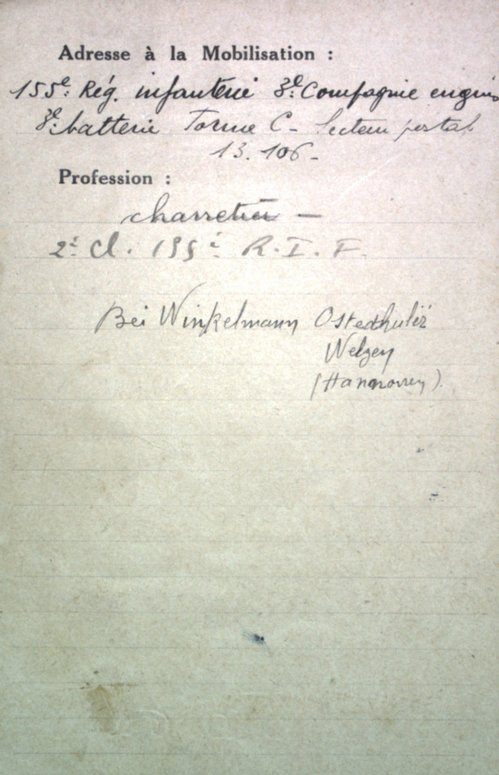 Adresse à la Mobilisation :
155e. Rég. infanterie 3e. Compagnie engins
3e. batterie Torme C - Secteur postal
13.106 -
Profession :
charretier -
2e Cl. 155e R.I.F.
Bei Winkelmann
Welzen
(Hannovren).